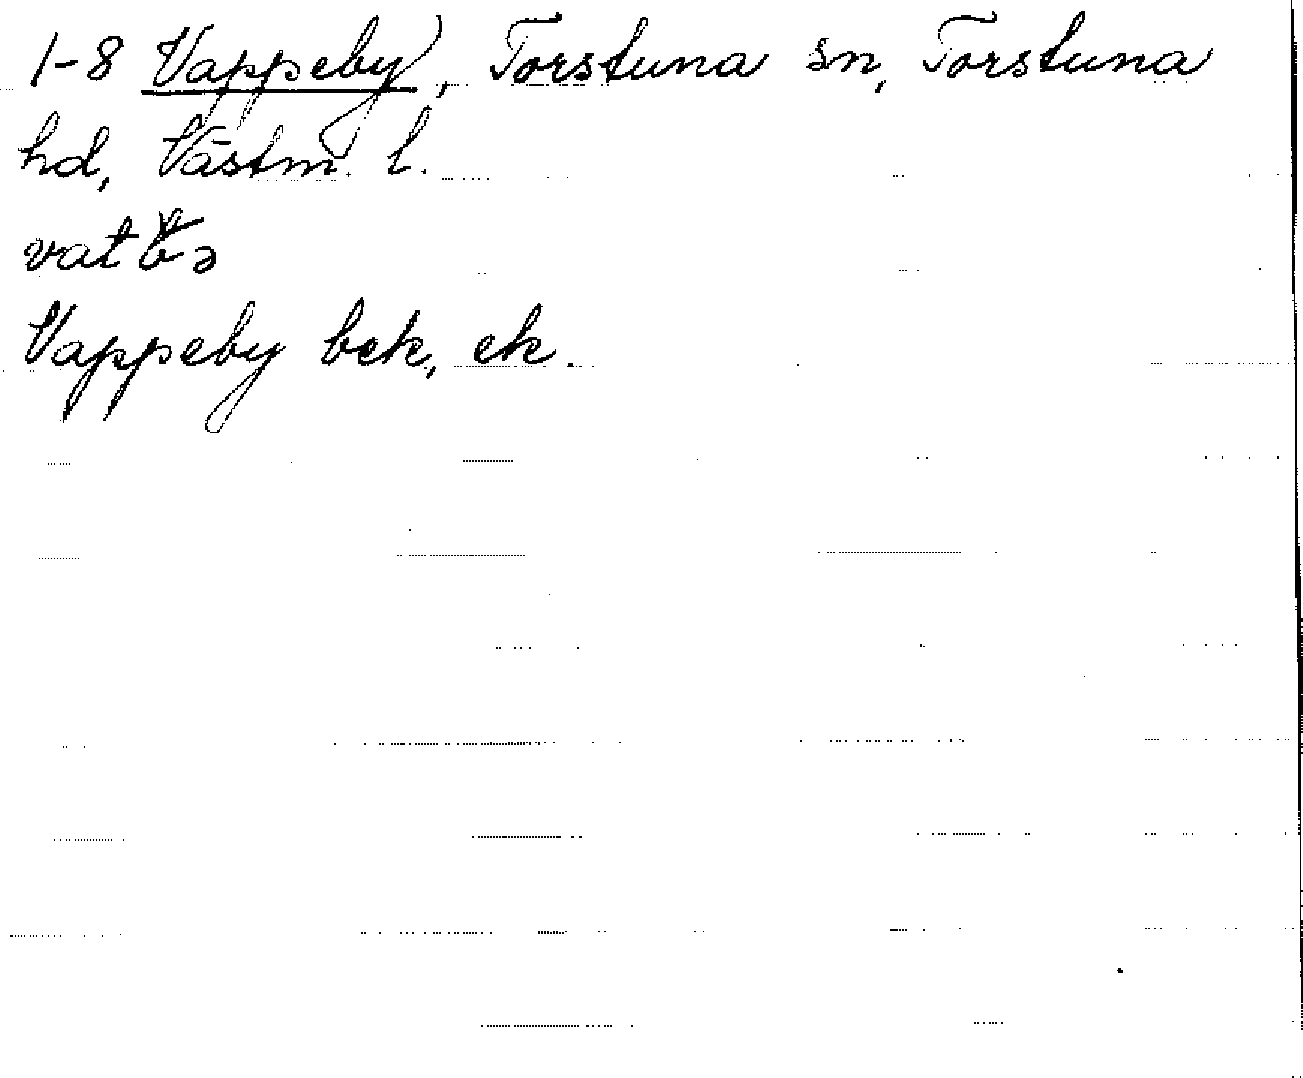 1-8 Vappeby, Torstuna sn, Torstuna
hd, Västm. l.
Vappeby bek, ek.